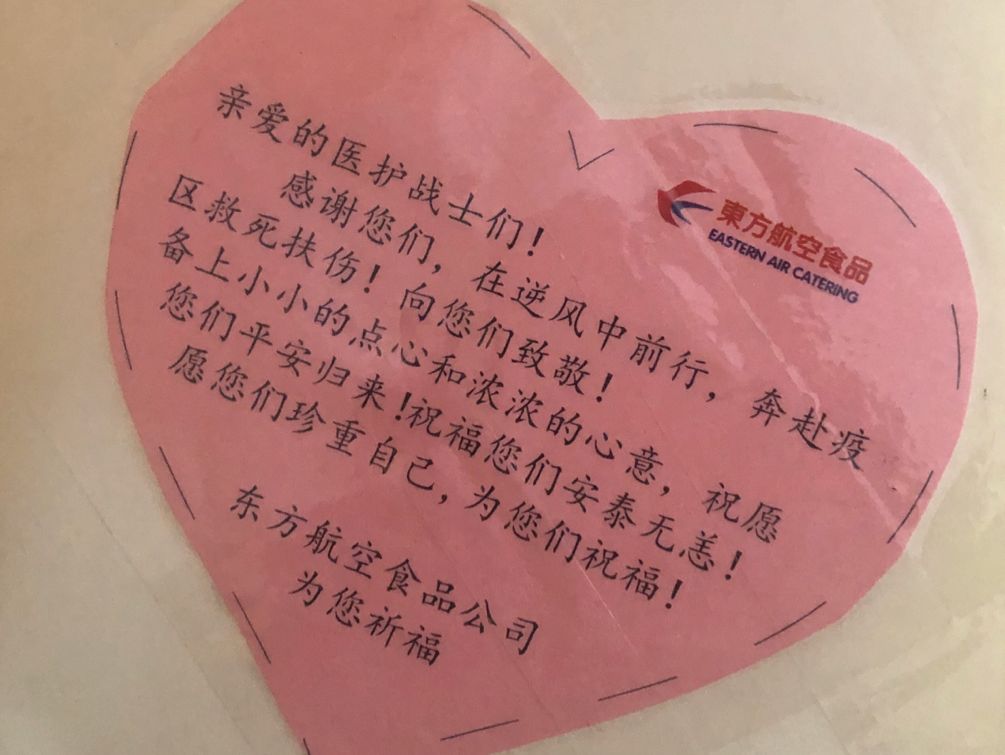 東方航空食品
EASTERN AIR CATERING
亲爱的医护战士们！
感谢您们，在逆风中前行，奔赴疫
区救死扶伤！向您们致敬！
备上小小的点心和浓浓的心意，祝愿
您们平安归来！祝福您们安泰无恙！
愿您们珍重自己，为您们祝福！
东方航空食品公司
为您祈福